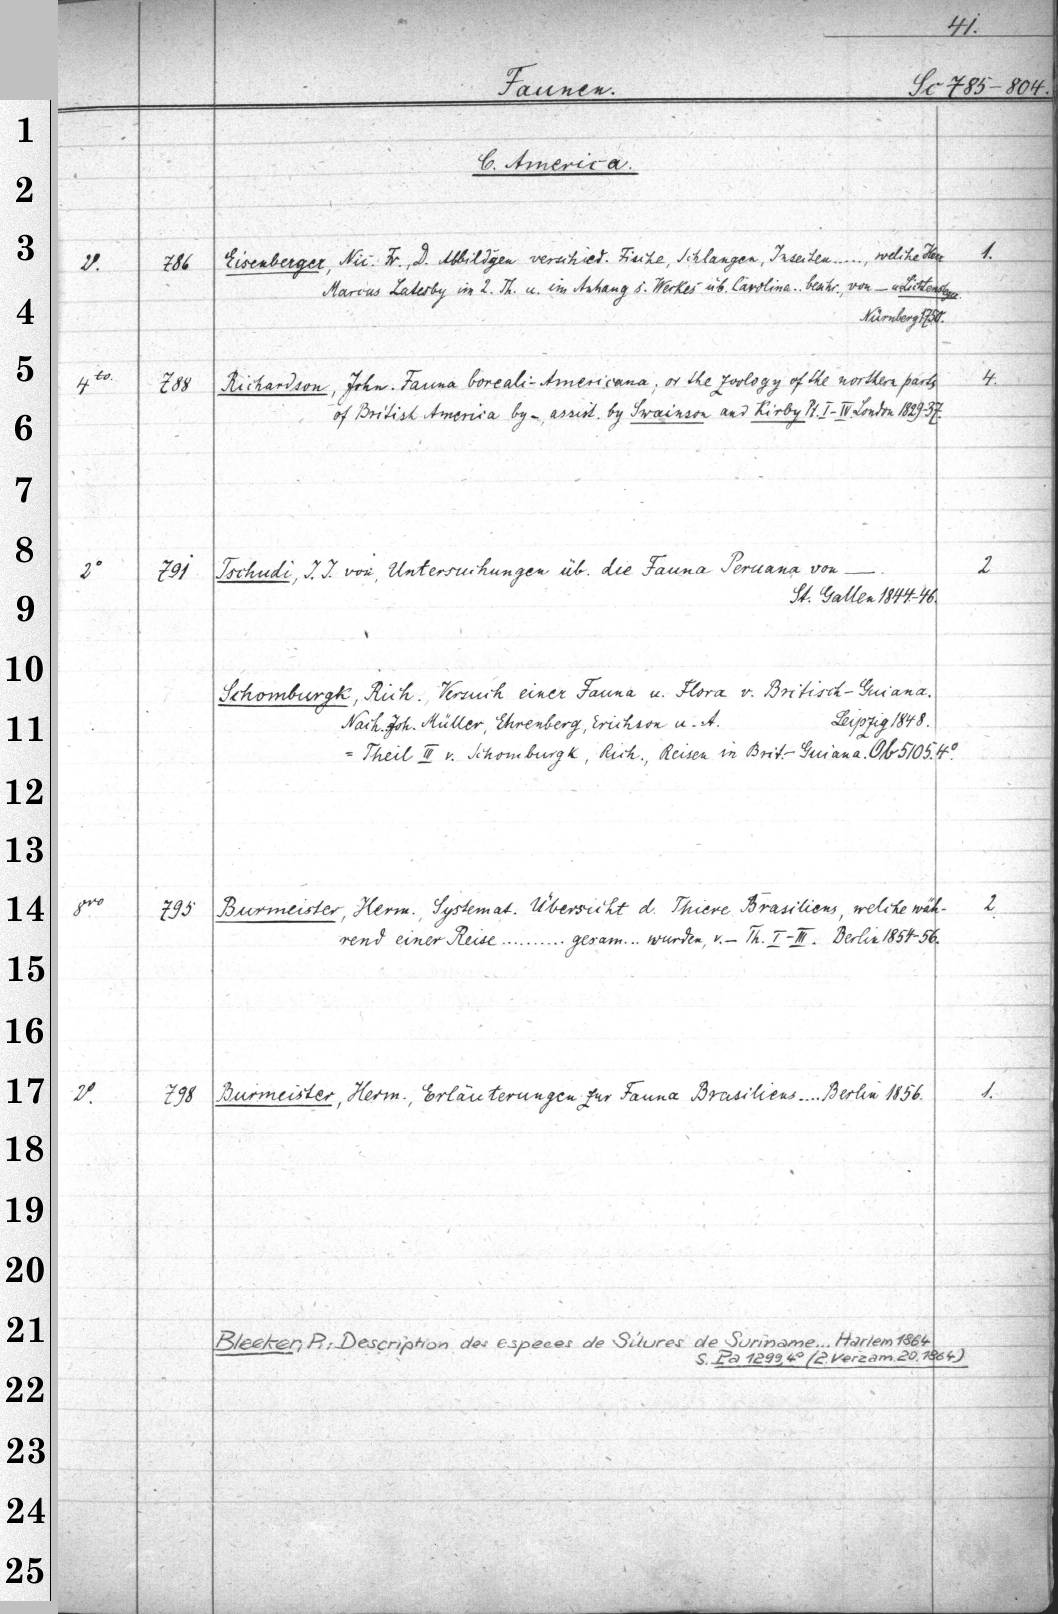 41.
Faunen. Sc 785-804.
1
C. America.
2
3 2°. 786 Eisenberger, Nic. Fr., D. Abbildgen verschied. Fische, Schlangen, Insecten....., welche Herr 1.
Marcus Catesby im 2. Th. u. im Anhang s. Werkes üb. Carolina.. beschr., von — u. Lichtensteger.
4 Nürnberg 1750.
5 4to. 788 Richardson, John. Fauna boreali-Americana, or the zoology of the northern parts 4.
6 of British America by —, assist. by Swainson and Kirby Pt. I-IV. London 1829-37.
7
8 2° 791 Tschudi, J. J. von, Untersuchungen üb. die Fauna Peruana von —. 2
9 St. Gallen 1844-46.
10 Schomburgk, Rich., Versuch einer Fauna u. Flora v. Britisch-Guiana.
11 Nach Joh. Müller, Ehrenberg, Erichson u. A. Leipzig 1848.
= Theil III v. Schomburgk, Rich., Reisen in Brit.-Guiana. Ob 5105. 4°.
12
13
14 8vo 795 Burmeister, Herm., Systemat. Übersicht d. Thiere Brasiliens, welche wäh- 2.
rend einer Reise .......... gesam... wurden, v. — Th. I-III. Berlin 1854-56.
15
16
17 2°. 798 Burmeister, Herm., Erläuterungen zur Fauna Brasiliens.... Berlin 1856. 1.
18
19
20
21 Bleeker, P.: Description des especes de Silures de Suriname... Harlem 1864
s. Pa 1299, 4° (2. Verzam. 20. 1864)
22
23
24
25